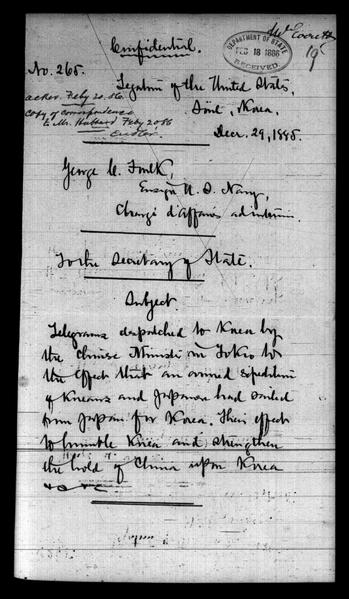 Mr Everett
19
Confidential.
DEPARTMENT OF STATE
FEB 18 1886
RECEIVED
No. 265.
Legation of the United States,
Söul, Korea,
Decr. 29, 1885.
ackd. Feby 20. 86.
Copy of correspondence
to Mr. Hubbard Feby 20 86
George C. Foulk,
Ensign U. S. Navy,
Chargé d'Affaires ad interim.
To the Secretary of State.
Subject.
Telegrams despatched to Korea by
the Chinese Minister in Tokio to
the effect that an armed expedition
of Koreans and Japanese had sailed
from Japan for Korea. Their effect
to humble Korea and strengthen
the hold of China upon Korea